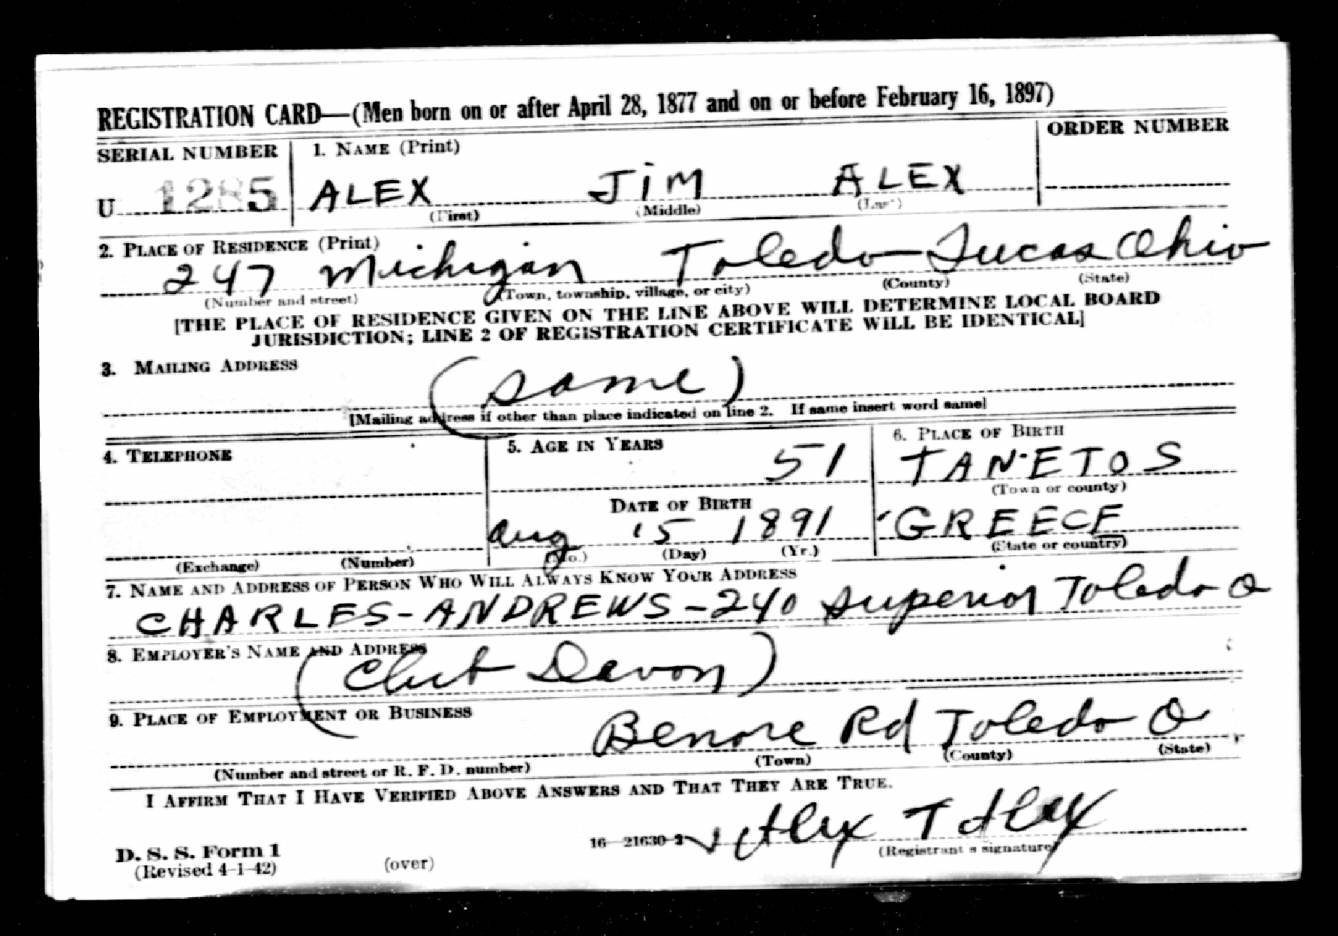 REGISTRATION CARD—(Men born on or after April 28, 1877 and on or before February 16, 1897)
SERIAL NUMBER 1. NAME (Print) ORDER NUMBER
U 1285 ALEX JIM ALEX
(First) (Middle) (Last)
2. PLACE OF RESIDENCE (Print)
247 Michigan Toledo Lucas Ohio
(Number and street) (Town, township, village, or city) (County) (State)
[THE PLACE OF RESIDENCE GIVEN ON THE LINE ABOVE WILL DETERMINE LOCAL BOARD
JURISDICTION; LINE 2 OF REGISTRATION CERTIFICATE WILL BE IDENTICAL]
3. MAILING ADDRESS
(same)
[Mailing address if other than place indicated on line 2. If same insert word same]
4. TELEPHONE 5. AGE IN YEARS 6. PLACE OF BIRTH
51 TANETOS
(Town or county)
DATE OF BIRTH
Aug 15 1891 GREECE
(Exchange) (Number) (Mo.) (Day) (Yr.) (State or country)
7. NAME AND ADDRESS OF PERSON WHO WILL ALWAYS KNOW YOUR ADDRESS
CHARLES-ANDREWS-240 Superior Toledo O
8. EMPLOYER'S NAME AND ADDRESS
( Devon)
9. PLACE OF EMPLOYMENT OR BUSINESS
Benore Rd Toledo O
(Number and street or R. F. D. number) (Town) (County) (State)
I AFFIRM THAT I HAVE VERIFIED ABOVE ANSWERS AND THAT THEY ARE TRUE.
D. S. S. Form 1
(Revised 4-1-42) (over) 16—21630-2 Alex T Alex
(Registrant's signature)